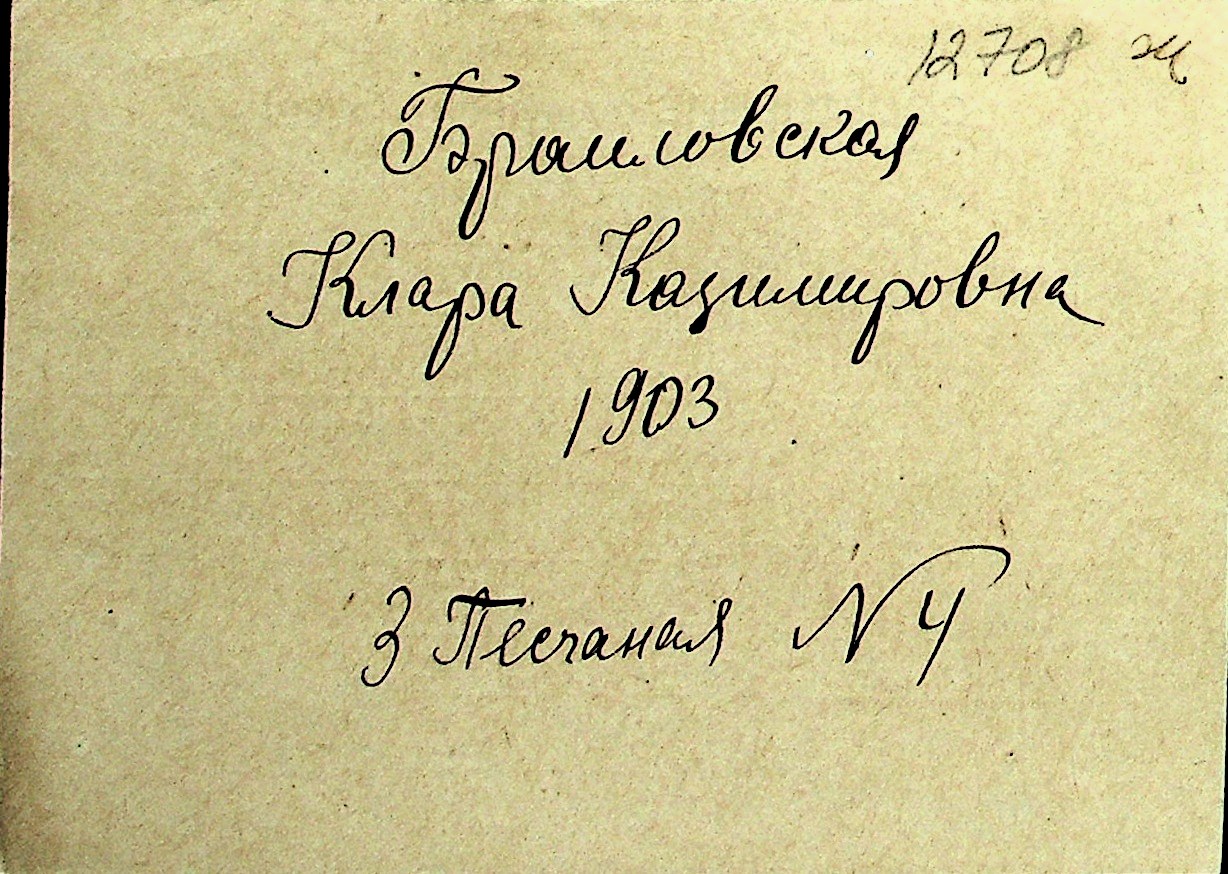 12708 ж
Браиловская
Клара Казимировна
1903
3 Песчаная N 4